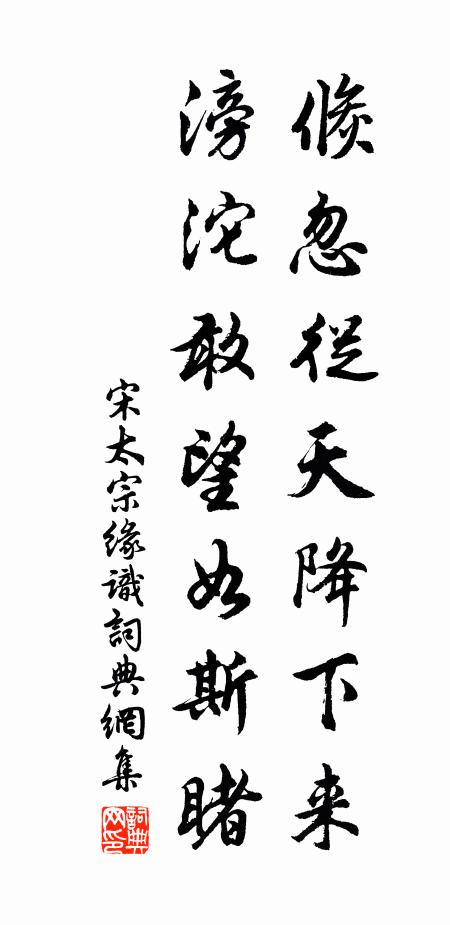 倏忽從天降下来
滂沱敢望如斯睹
宋太宗緣識詞典網集
詞典网印